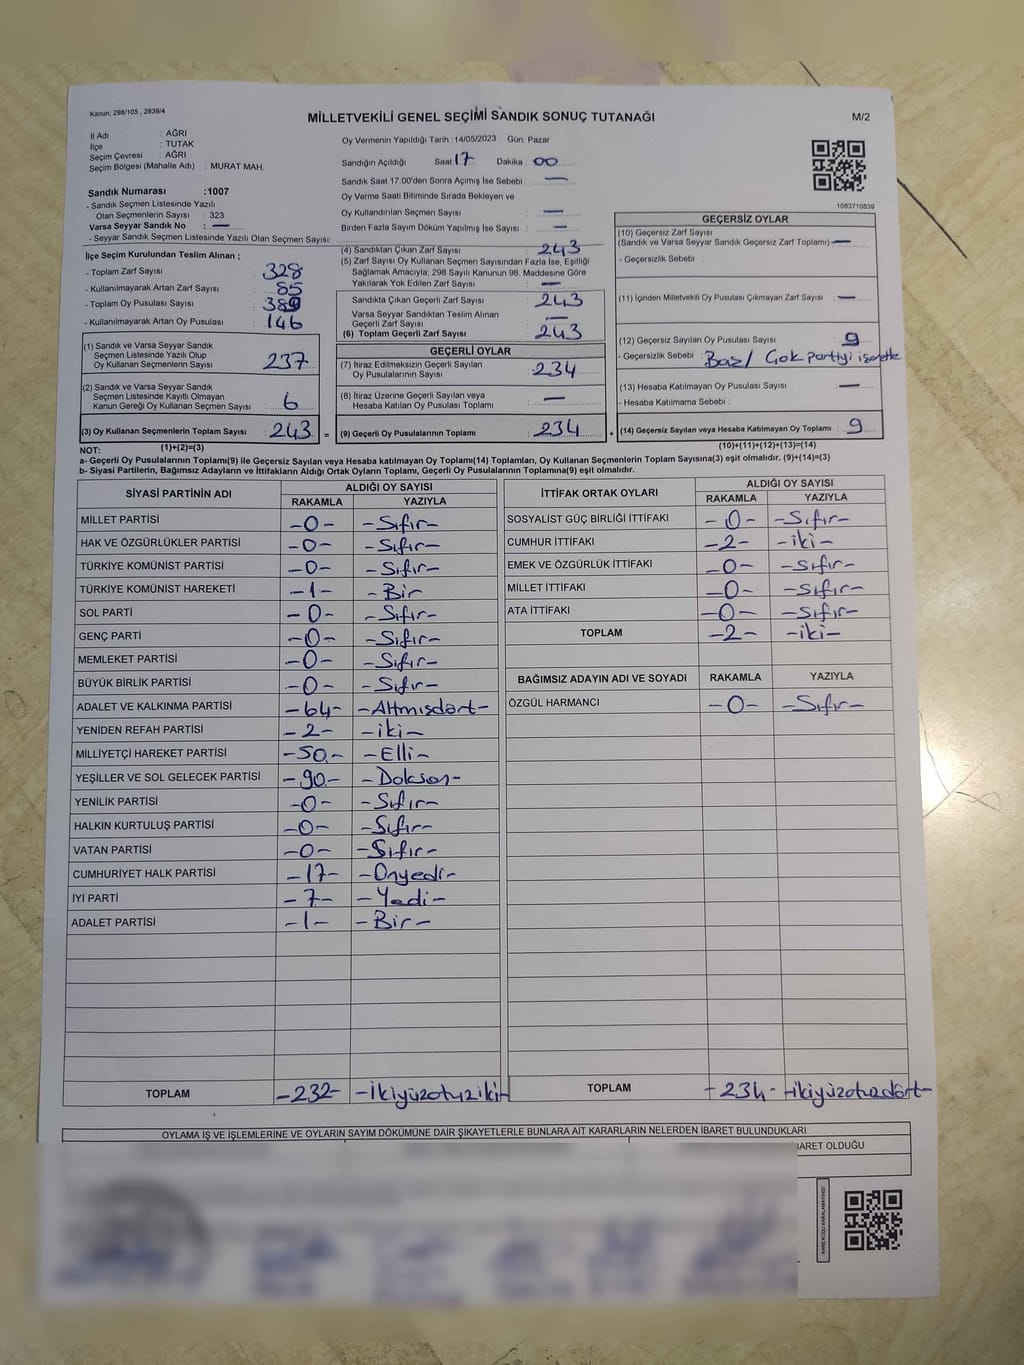 Kanun: 298/105 , 2839/4
MİLLETVEKİLİ GENEL SEÇİMİ SANDIK SONUÇ TUTANAĞI
M/2
İl Adı : AĞRI
İlçe : TUTAK
Seçim Çevresi : AĞRI
Seçim Bölgesi (Mahalle Adı) : MURAT MAH.
Sandık Numarası :1007
- Sandık Seçmen Listesinde Yazılı
Olan Seçmenlerin Sayısı : 323
Varsa Seyyar Sandık No : —
- Seyyar Sandık Seçmen Listesinde Yazılı Olan Seçmen Sayısı:
Oy Vermenin Yapıldığı Tarih : 14/05/2023 Gün: Pazar
Sandığın Açıldığı Saat 17 Dakika : 00
Sandık Saat 17:00'den Sonra Açımış İse Sebebi : —
Oy Verme Saati Bitiminde Sırada Bekleyen ve
Oy Kullandırılan Seçmen Sayısı —
Birden Fazla Sayım Döküm Yapılmış İse Sayısı : —
1083710839
İlçe Seçim Kurulundan Teslim Alınan ;
- Toplam Zarf Sayısı : 328
- Kullanılmayarak Artan Zarf Sayısı : 85
- Toplam Oy Pusulası Sayısı :
- Kullanılmayarak Artan Oy Pusulası : 146
(1) Sandık ve Varsa Seyyar Sandık
Seçmen Listesinde Yazılı Olup
Oy Kullanan Seçmenlerin Sayısı : 237
(2) Sandık ve Varsa Seyyar Sandık
Seçmen Listesinde Kayıtlı Olmayan
Kanun Gereği Oy Kullanan Seçmen Sayısı : 6
(3) Oy Kullanan Seçmenlerin Toplam Sayısı : 243 =
(4) Sandıktan Çıkan Zarf Sayısı : 243
(5) Zarf Sayısı Oy Kullanan Seçmen Sayısından Fazla İse, Eşitliği
Sağlamak Amacıyla; 298 Sayılı Kanunun 98. Maddesine Göre
Yakılarak Yok Edilen Zarf Sayısı : —
Sandıkta Çıkan Geçerli Zarf Sayısı 243
Varsa Seyyar Sandıktan Teslim Alınan
Geçerli Zarf Sayısı —
(6) Toplam Geçerli Zarf Sayısı : 243
GEÇERLİ OYLAR
(7) İtiraz Edilmeksizin Geçerli Sayılan
Oy Pusulalarının Sayısı : 234
(8) İtiraz Üzerine Geçerli Sayılan veya
Hesaba Katılan Oy Pusulası Toplamı : —
(9) Geçerli Oy Pusulalarının Toplamı : 234 +
GEÇERSİZ OYLAR
(10) Geçersiz Zarf Sayısı
(Sandık ve Varsa Seyyar Sandık Geçersiz Zarf Toplamı) —
- Geçersizlik Sebebi :
(11) İçinden Milletvekili Oy Pusulası Çıkmayan Zarf Sayısı : —
(12) Geçersiz Sayılan Oy Pusulası Sayısı : 9
- Geçersizlik Sebebi :
(13) Hesaba Katılmayan Oy Pusulası Sayısı : —
- Hesaba Katılmama Sebebi :
(14) Geçersiz Sayılan veya Hesaba Katılmayan Oy Toplamı : 9
(1)+(2)=(3)
(10)+(11)+(12)+(13)=(14)
NOT:
a- Geçerli Oy Pusulalarının Toplamı(9) ile Geçersiz Sayılan veya Hesaba katılmayan Oy Toplamı(14) Toplamları, Oy Kullanan Seçmenlerin Toplam Sayısına(3) eşit olmalıdır. (9)+(14)=(3)
b- Siyasi Partilerin, Bağımsız Adayların ve İttifakların Aldığı Ortak Oyların Toplamı, Geçerli Oy Pusulalarının Toplamına(9) eşit olmalıdır.
SİYASİ PARTİNİN ADI ALDIĞI OY SAYISI
RAKAMLA YAZIYLA
MİLLET PARTİSİ -0- -Sıfır-
HAK VE ÖZGÜRLÜKLER PARTİSİ -0- -Sıfır-
TÜRKİYE KOMÜNİST PARTİSİ -0- -Sıfır-
TÜRKİYE KOMÜNİST HAREKETİ -1- -Bir
SOL PARTİ -0- -Sıfır-
GENÇ PARTİ -0- -Sıfır-
MEMLEKET PARTİSİ -0- -Sıfır-
BÜYÜK BİRLİK PARTİSİ -0- -Sıfır-
ADALET VE KALKINMA PARTİSİ -64- -Altmısdört-
YENİDEN REFAH PARTİSİ -2- -iki-
MİLLİYETÇİ HAREKET PARTİSİ -50- -Elli-
YEŞİLLER VE SOL GELECEK PARTİSİ -90- -Doksan-
YENİLİK PARTİSİ -0- -Sıfır-
HALKIN KURTULUŞ PARTİSİ -0- -Sıfır-
VATAN PARTİSİ -0- -Sıfır-
CUMHURİYET HALK PARTİSİ -17- -Onyedi-
İYİ PARTİ -7- -Yedi-
ADALET PARTİSİ -1- -Bir-
TOPLAM -232- -İkiyüzotuziki-
İTTİFAK ORTAK OYLARI ALDIĞI OY SAYISI
RAKAMLA YAZIYLA
SOSYALİST GÜÇ BİRLİĞİ İTTİFAKI -0- -Sıfır-
CUMHUR İTTİFAKI -2- -iki-
EMEK VE ÖZGÜRLÜK İTTİFAKI -0- -Sıfır-
MİLLET İTTİFAKI -0- -Sıfır-
ATA İTTİFAKI -0- -Sıfır-
TOPLAM -2- -iki-
BAĞIMSIZ ADAYIN ADI VE SOYADI RAKAMLA YAZIYLA
ÖZGÜL HARMANCI -0- -Sıfır-
TOPLAM -234- -ikiyüzotuzdört-
OYLAMA İŞ VE İŞLEMLERİNE VE OYLARIN SAYIM DÖKÜMÜNE DAİR ŞİKAYETLERLE BUNLARA AİT KARARLARIN NELERDEN İBARET BULUNDUKLARI
İBARET OLDUĞU
KARE KODU KARALAMAYINIZ!